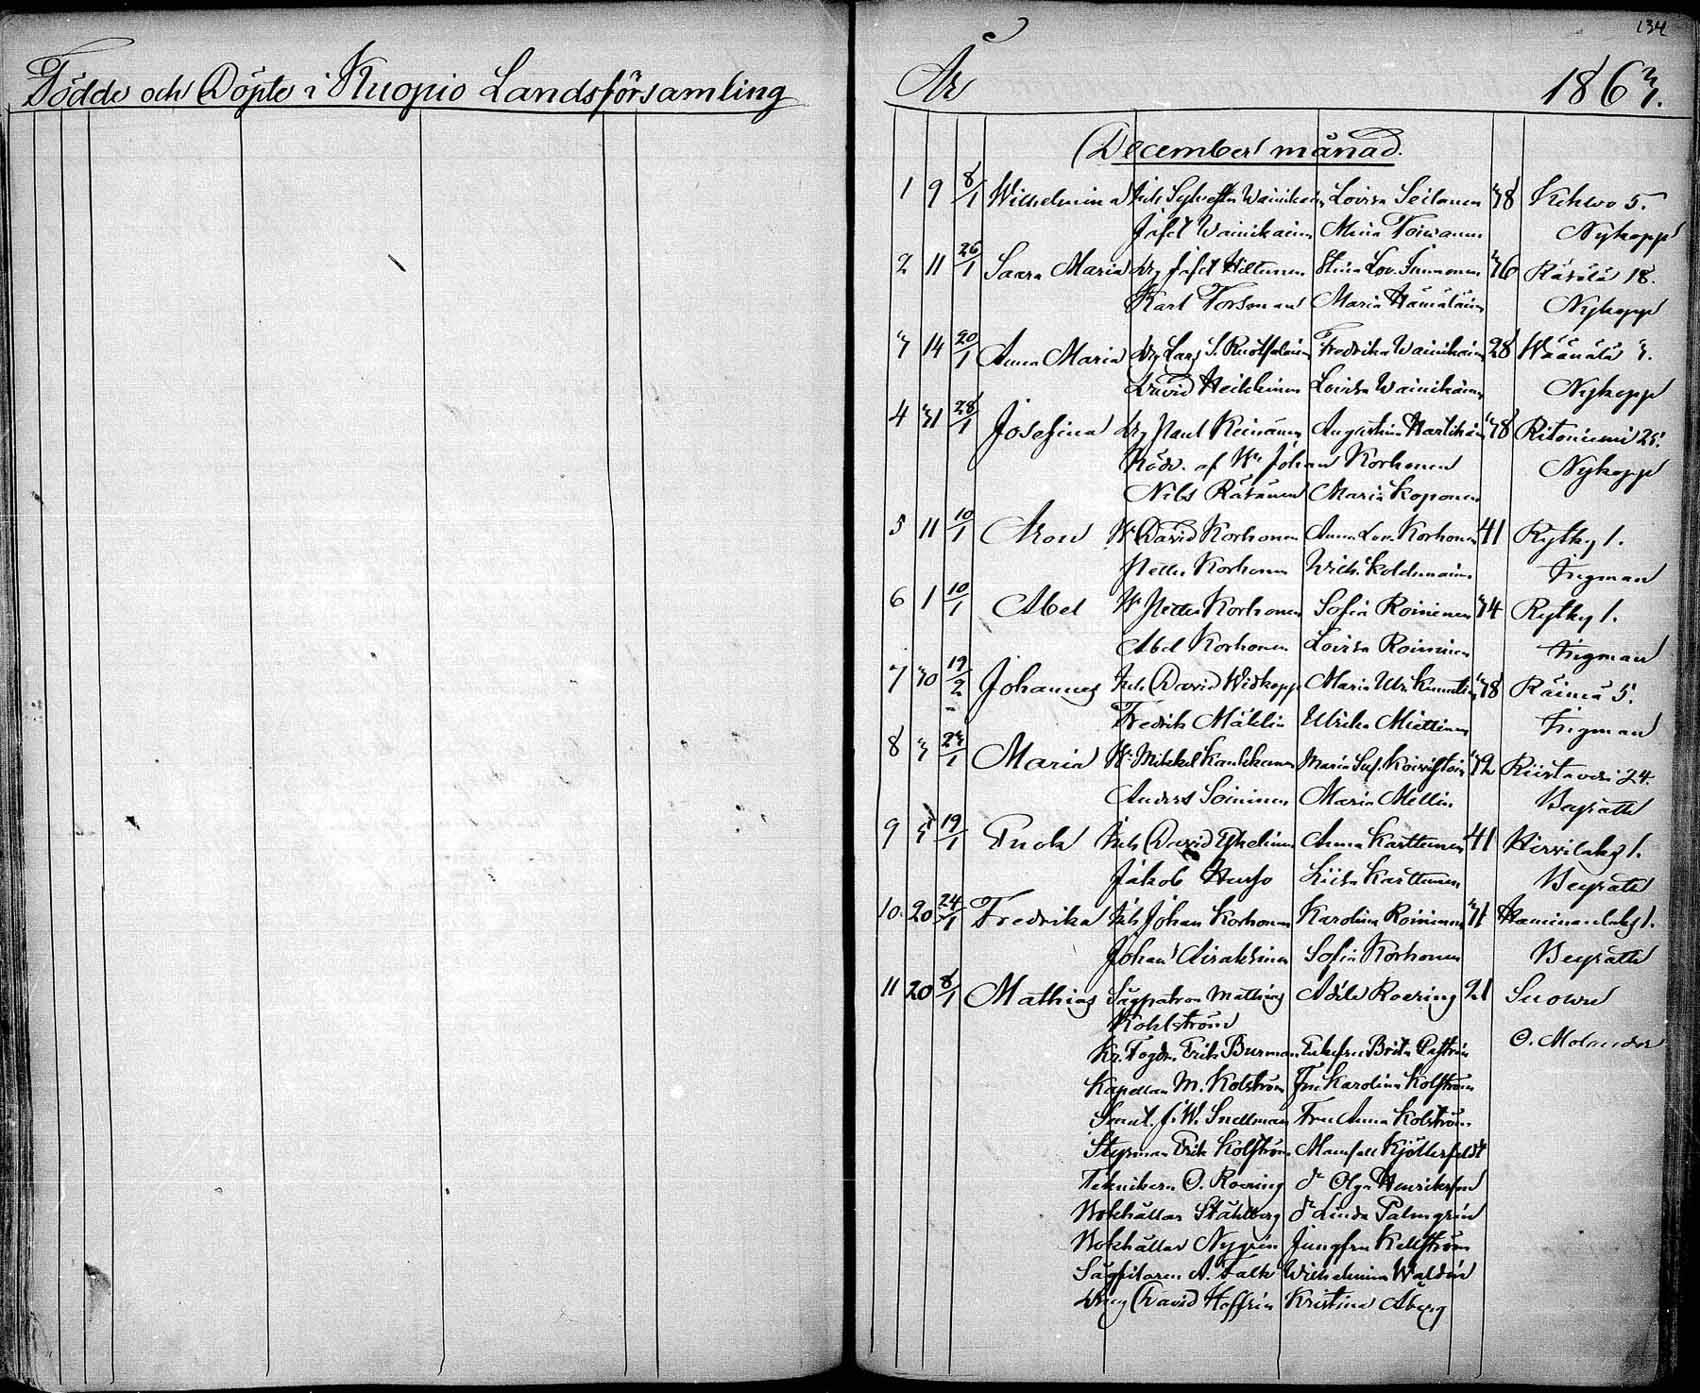 134
Födde och Döpte i Kuopio Landsförsamling
År 1863.
December månad.
1 9 8/1 Wilhelmina Inh Sylvester Wainikain Lovisa Seilonen 38 Kehwo 5.
Jafet Wainikainen Miina Toivanen Nykopp
2 11 26/1 Saara Maria Drg Jafet Hiltunen Stina Lov. Immonen 36 Räsälä 18.
Karl Forsman Maria Hämäläin Nykopp
3 14 20/1 Anna Maria Drg Lars J. Ruotsalain Fredrika Wainikain 28 Wäänälä 3.
David Heikkinen Lovisa Wainikain Nykopp
4 31 28/1 Josefina Drg Paul Keinänen Augustina Hartikain 38 Ritoniemi 25.
Röds. af Wr Johan Korhonen Nykopp
Nils Räsänen Maria Koponen
5 11 10/1 Aron Wr David Korhonen Anna Lov. Korhonen 41 Rytky 1.
Petter Korhonen Wilh. Kolehmain Zigman
6 1 10/1 Abel Wr Petter Korhonen Sofia Roininen 34 Rytky 1.
Abel Korhonen Lovisa Roininen Zigman
7 30 19/2 Johannes Inh David Widkopp Maria Ulr. 38 Räimä 5.
Fredrik Mählin Ulrika Miettinen Zigman
8 3 23/1 Maria Wr Mikkel Kaukkanen Maria Sof. Koivistoin 32 Riistavesi 24.
Anders Soininen Maria Mellin Beyrath
9 5 19/1 Enok Inh David Anna Karttunen 41 Hirvilaks 1.
Jakob Hurso Liisa Karttunen Beyrath
10. 20 24/1 Fredrika Inh Johan Korhonen Karolina Roininen 31 Haminanlaks 1.
Johan Airaksinen Sofia Korhonen Beyrath
11 20 8/1 Mathias Sågpatron Mathias Adele Roering 21 Suowu
Kohlström
O. Molander
Kr. Fogden Erik Burman Enkefru Brita Caström
Kapellan M. Kolström Fru Karolina Kolström
Senat. J. W. Snellman Fru Anna Kolström
Styrman Erik Kolström Mamsell Kjöllerfeldt
Teknikern O. Roering Dr Olga Henrikson
Bokhållar Ståhlberg Dr Linda Palmgrén
Bokhållar Nygrén Jungfru Kellström
Sågfilaren A. Falk Wilhelmina Waldén
Dreng David Hoffrén Kristina Åberg